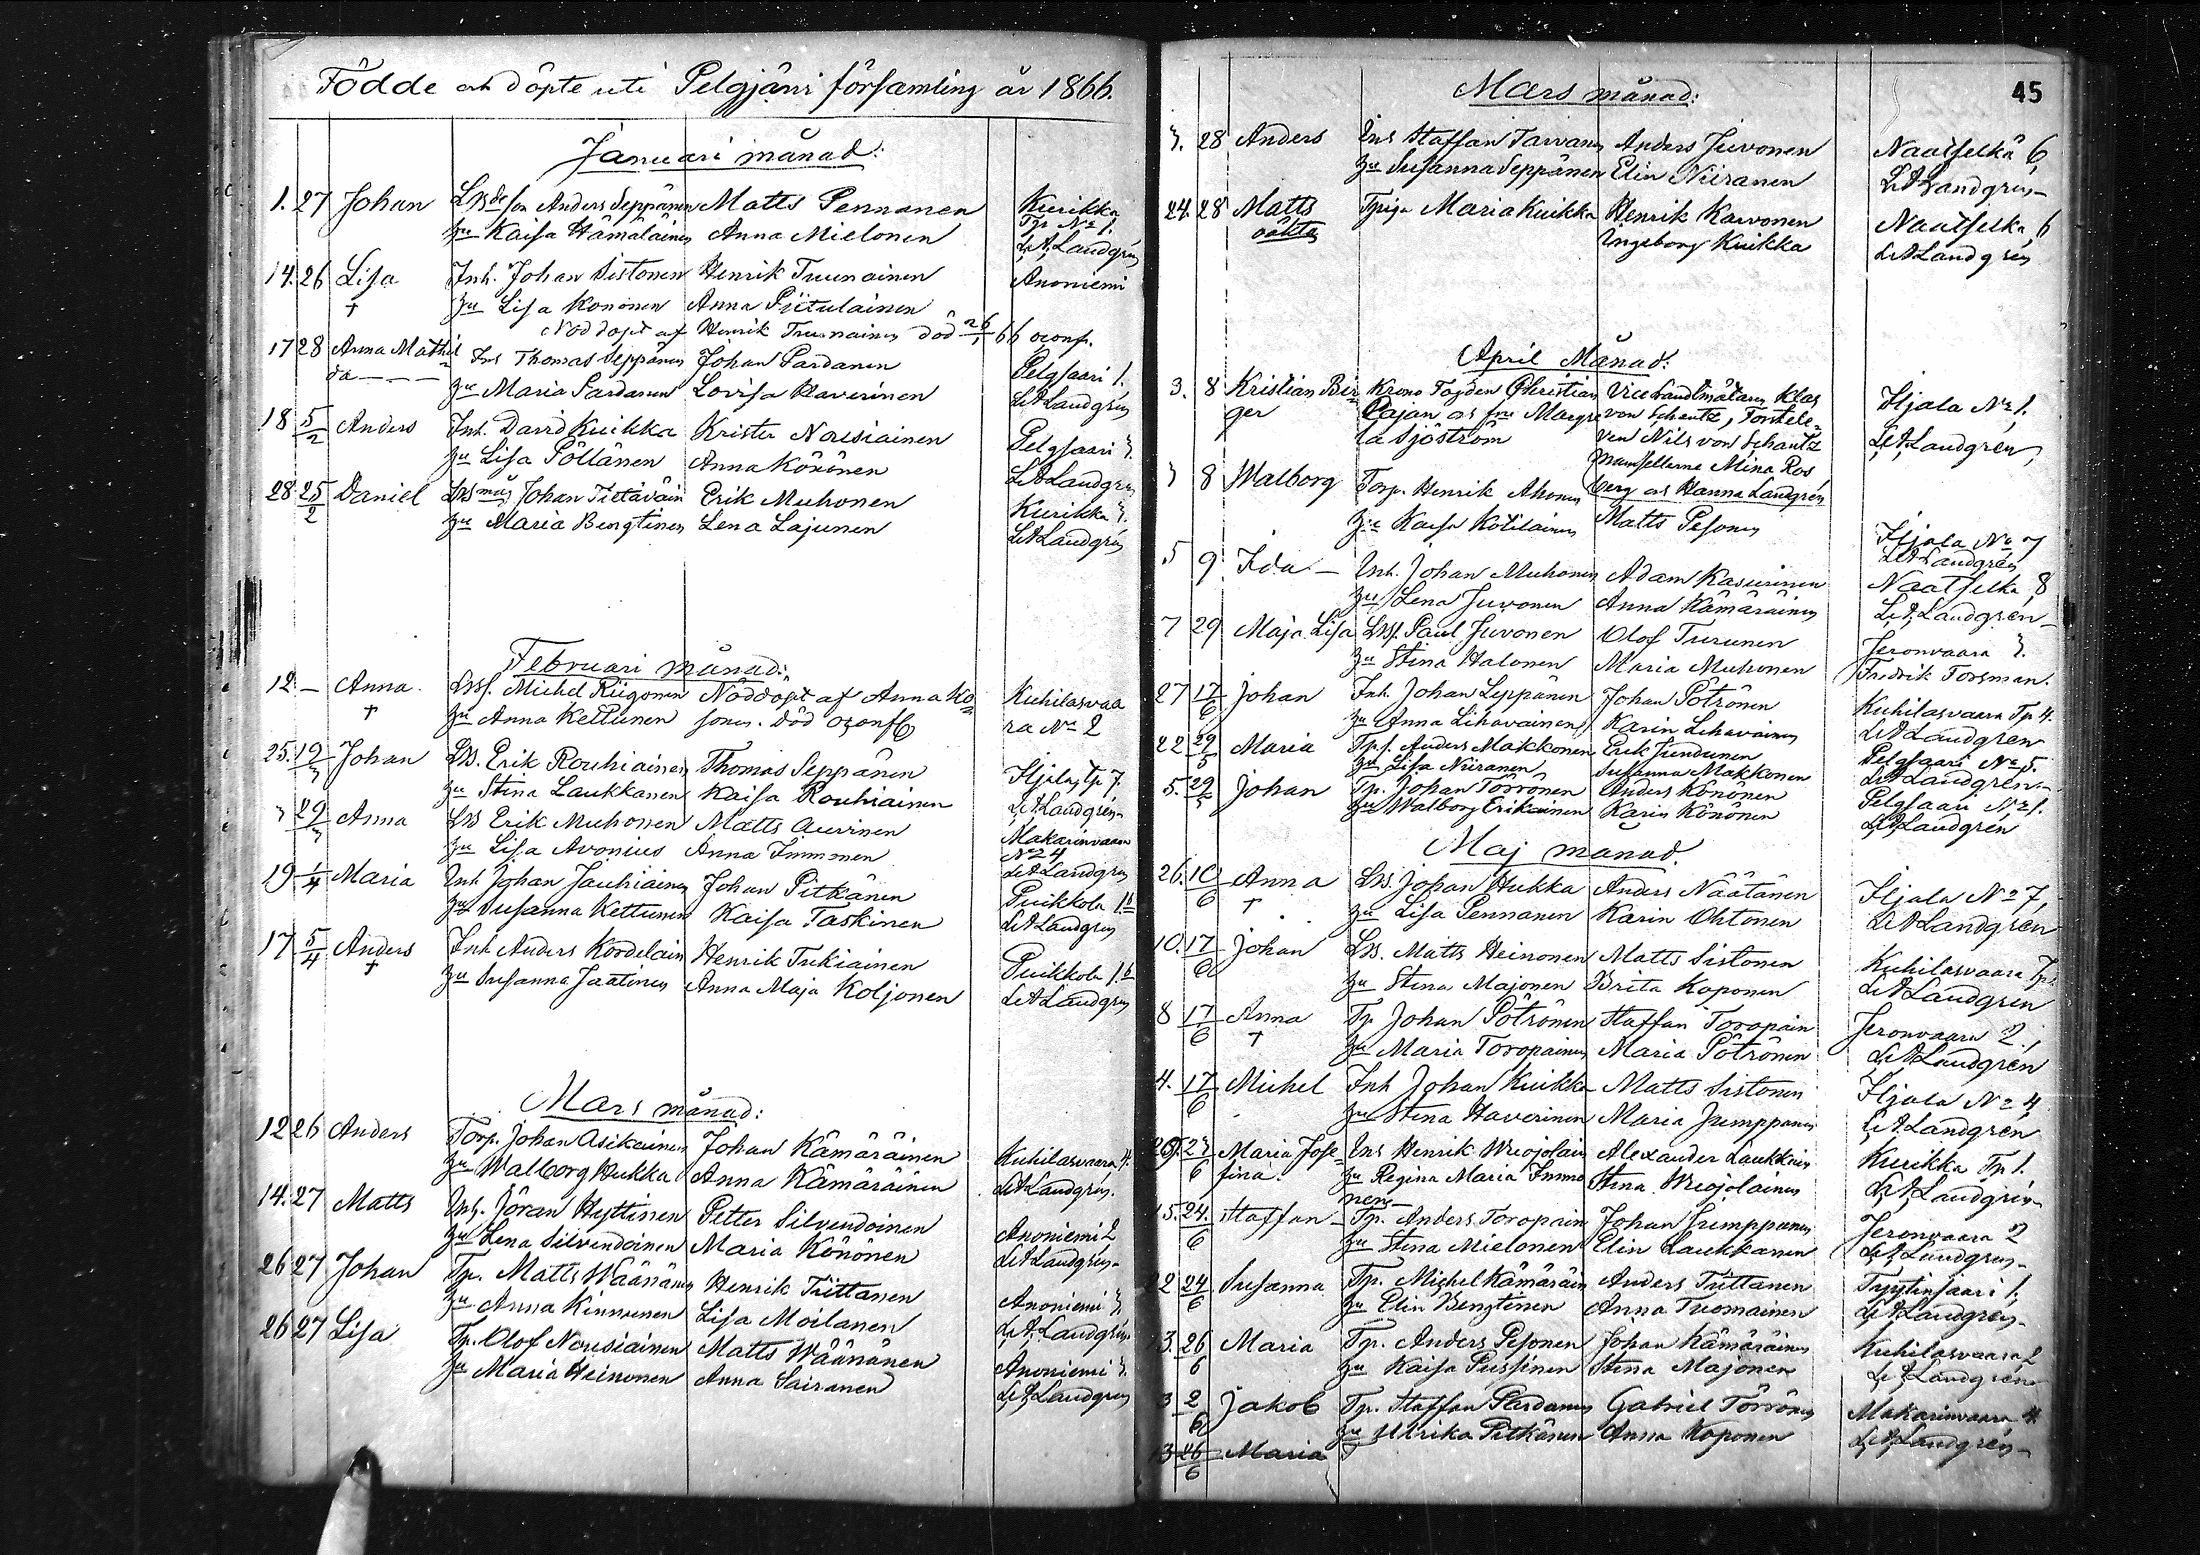 Födde och döpte uti Pelgjärvi församling år 1866.
Januari månad:
1. 27 Johan Lssde son Anders Seppänen Matts Pennanen Kurikka
hu Kaisa Hämäläinen Anna Mielonen Tp No 1.
L.A. Landgrén
14. 26 Lisa Inh. Johan Sistonen Henrik Tuunainen Anoniemi
† hu Lisa Kononen Anna Piitulainen
Nöd döpt af Henrik Tuunainen död 26/1 66 oconf.
17 28 Anna Mathil Inh Thomas Seppänen Johan Pardanen Pelgsaari 1.
da — — — hu Maria Pardanen Lovisa Haverinen L.A. Landgrén
18 5/2 Anders Inh. David Kuikka Krister Nousiainen Pelgsaari 3.
hu Lisa Pöllänen Anna Könönen L.A. Landgrén
28 25/2 Daniel Lssmåg Johan Tiittäväin Erik Muhonen Kurikka 3.
hu Maria Bengtinen Lena Lajunen L.A. Landgrén
Februari månad:
12 — Anna Lssf. Michel Riigonen Nöddöpt af Anna Ko= Kuhilasvaa
† hu Anna Kettunen sonen. död oconf ra No 2
25. 19/3 Johan Ls. Erik Rouhiainen Thomas Seppänen Hjala Tp 7.
hu Stina Laukkanen Kaisa Rouhiainen L.A. Landgrén
3 29/3 Anna Ls Erik Muhonen Matts Auvinen Makarinvaara
hu Lisa Avonius Anna Immonen No 24
L.A. Landgrén
19 1/4 Maria Inh Johan Jauhiainen Johan Pitkänen Puikkola 1.b
hu Susanna Kettunen Kaisa Taskinen L.A. Landgrén
17 5/4 Anders Inh Anders Kordelain Henrik Tukiainen Puikkola 1.b
† hu Susanna Jaatinen Anna Maja Koljonen L.A. Landgrén
Mars månad:
12 26 Anders Torp. Johan Asikainen Johan Kämäräinen Kuhilasvaara 4.
hu Walborg Hukka Anna Kämäräinen L.A. Landgrén.
14. 27 Matts Inh. Jöran Hyttinen Petter Silvendoinen Anoniemi 2
hu Lena Silvendoinen Maria Könönen L.A. Landgrén
26 27 Johan Tp. Matts Wäänänen Henrik Tiittanen Anoniemi 3.
hu Anna Kinnunen Lisa Moilanen L.A. Landgrén
26 27 Lisa Tp. Olof Nousiainen Matts Wäänänen Anoniemi 3.
hu Maria Heinonen Anna Sairanen L.A. Landgrén
Mars månad: 45
3. 28 Anders Inh Staffan Tarvanen Anders Juvonen Naatselkä 6
hu Susanna Seppänen Elin Niiranen L.A. Landgrén
24. 28 Matts Tpiga Maria Kuikka Henrik Karvonen Naatselkä 6
oäkta Ingeborg Kuikka L.A. Landgrén
April Månad:
3. 8 Kristian Bir= Krono Fogden Christian Vice Landtmätaren Klas Hjala No 1.
ger Cajan och fru Margre von Schantz, Fontele=
ta Sjöström ven Nils von Schantz L.A. Landgrén
Mamsellerne Mina Ros
3 8 Walborg Torp. Henrik Ahonen berg och Hanna Landgrén
hu Kaisa Kotilainen Matts Pesonen Hjala No 7
L.A. Landgrén
5 9 Ida — Inh. Johan Muhonen Adam Kasurinen Naatselka 8
hu Lena Juvonen Anna Kämäräinen L.A. Landgrén
7 29 Maja Lisa Lssf. Paul Juvonen Olof Turunen Jeronvaara 3.
hu Stina Halonen Maria Muhonen Fredrik Forsman.
27 17/6 Johan Inh. Johan Leppänen Johan Pötrönen Kuhilasvaara Tp 4.
hu Anna Lihavainen Karin Lihavainen L.A. Landgrén
22 29/5 Maria Tp.f. Anders Makkonen Erik Jundunen Pelgsaari No 5.
hu Lisa Niiranen Susanna Makkonen L.A. Landgrén
5. 29/5 Johan Tp. Johan Törrönen Anders Könönen Pelgsaari No 1.
hu Walborg Erikainen Karin Könönen L.A. Landgrén
Maj månad.
26. 10/6 Anna Ls. Johan Hukka Anders Näätänen Hjala No 7,
† hu Lisa Pennanen Karin Ohtonen L.A. Landgrén
10. 17/6 Johan Ls. Matts Heinonen Matts Sistonen Kuhilasvaara Tp
hu Stina Majonen Brita Koponen L.A. Landgrén
8 17/6 Anna Tp Johan Pötrönen Staffan Toropain Jeronvaara 2.
† hu Maria Toropainen Maria Pötrönen L.A. Landgrén
4. 17/6 Michel Inh Johan Kuikka Matts Sistonen Hjala No 4
hu Stina Haverinen Maria Jumppanen L.A. Landgrén
23/6 Maria Jose= Inh Henrik Wuojolain Alexander Laukkain Kurikka Tp 1.
fina. hu Regina Maria Immo Stina Wuojolainen L.A. Landgrén
nen
15. 24/6 Staffan Tp. Anders Toropain Johan Jumppanen Jeronvaara 2
hu Stina Mielonen Elin Laukkanen L.A. Landgrén
22 24/6 Susanna Tp. Michel Kämäräin Anders Tiittanen Tyytinsaari 1.
hu Elin Bengtinen Anna Tuomainen L.A. Landgrén
3. 26/6 Maria Tp. Anders Pesonen Johan Kämäräinen Kuhilasvaara 2
hu Kaisa Pussinen Stina Majonen L.A. Landgrén
3 2/6 Jakob Tp. Staffan Pardanen Gabriel Törrönen Makarinvaara 4.
hu Ulrika Pitkänen Anna Koponen L.A. Landgrén
3 26/6 Maria